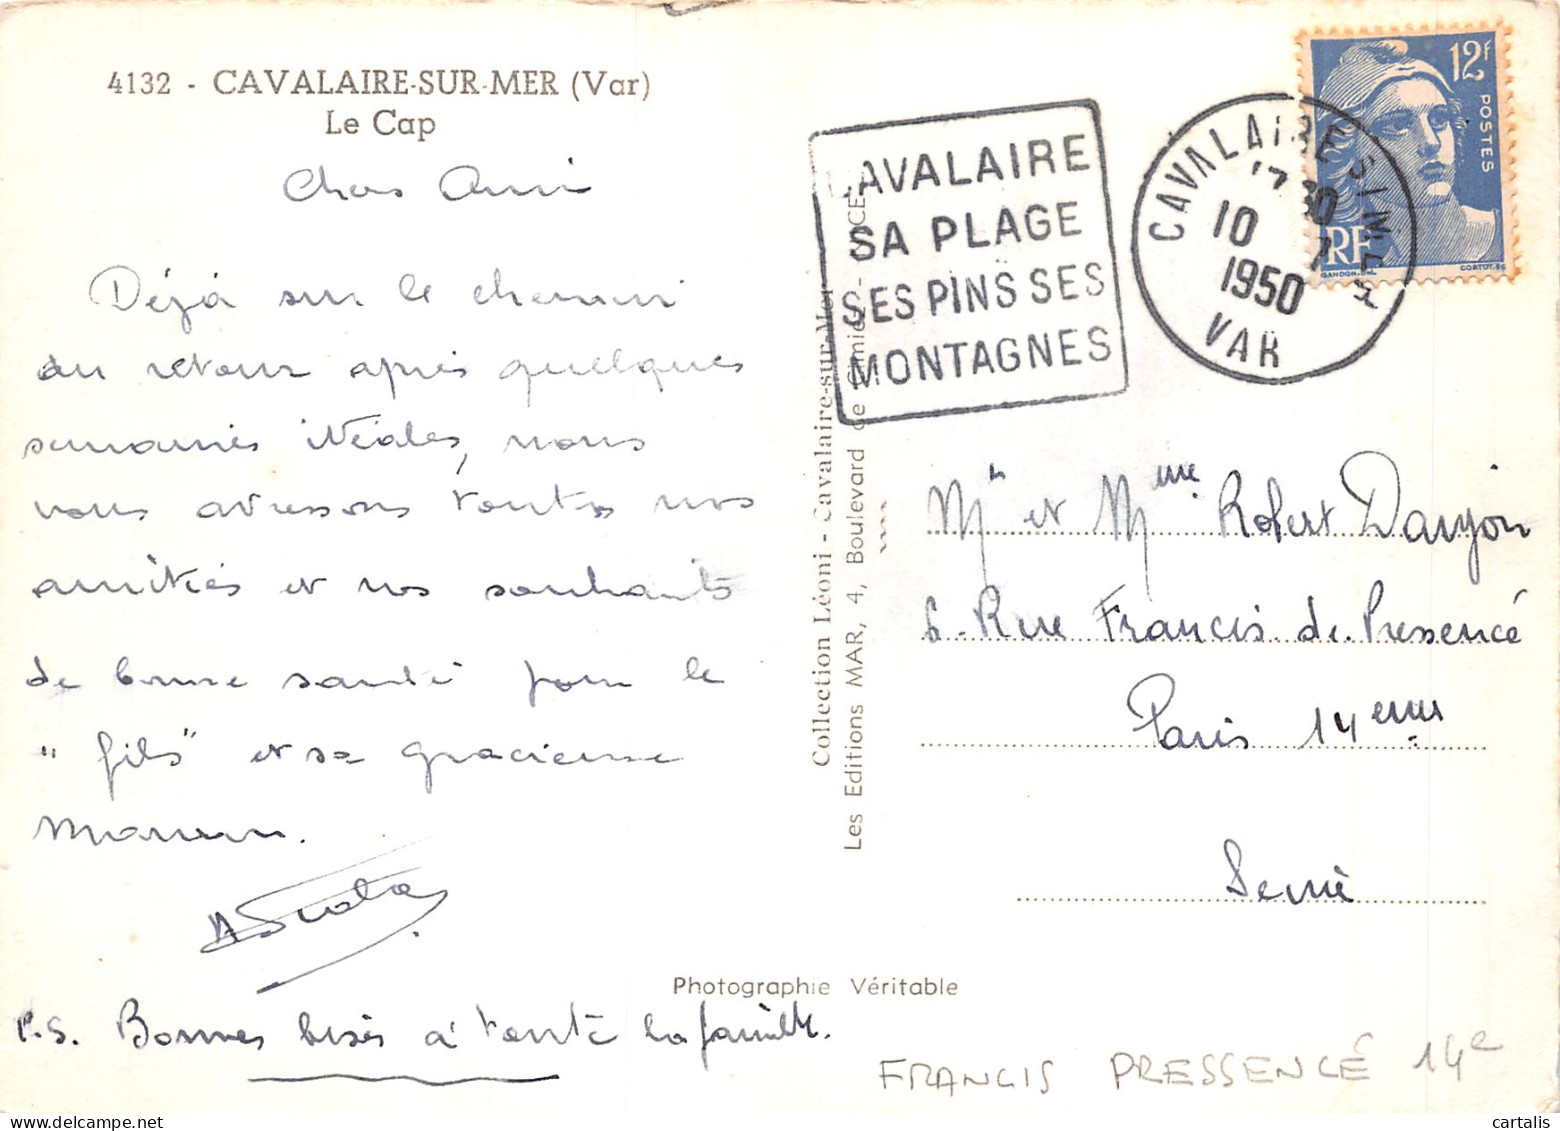 4132 - CAVALAIRE-SUR-MER (Var)
Le Cap
Chers Amis
Déjà sur le chemin
du retour après quelques
semaines idéales, nous
vous adressons toutes nos
amitiés et nos souhaits
de bonne santé pour le
"fils" et sa gracieuse
Maman.
P.S. Bonnes bises à toute la famille.
Collection Léoni - Cavalaire-sur-Mer
Les Editions MAR, 4, Boulevard de Cimiez - NICE
Photographie Véritable
CAVALAIRE
SA PLAGE
SES PINS SES
MONTAGNES
CAVALAIRE S/MER
17 30
10 7
1950
VAR
12F
POSTES
RF
GANDON.DEL
CORTOT.SC
Mr et Mme Robert Daujon
6. Rue Francis de Pressencé
Paris 14eme
Seine
FRANCIS PRESSENCÉ 14e
cartalis